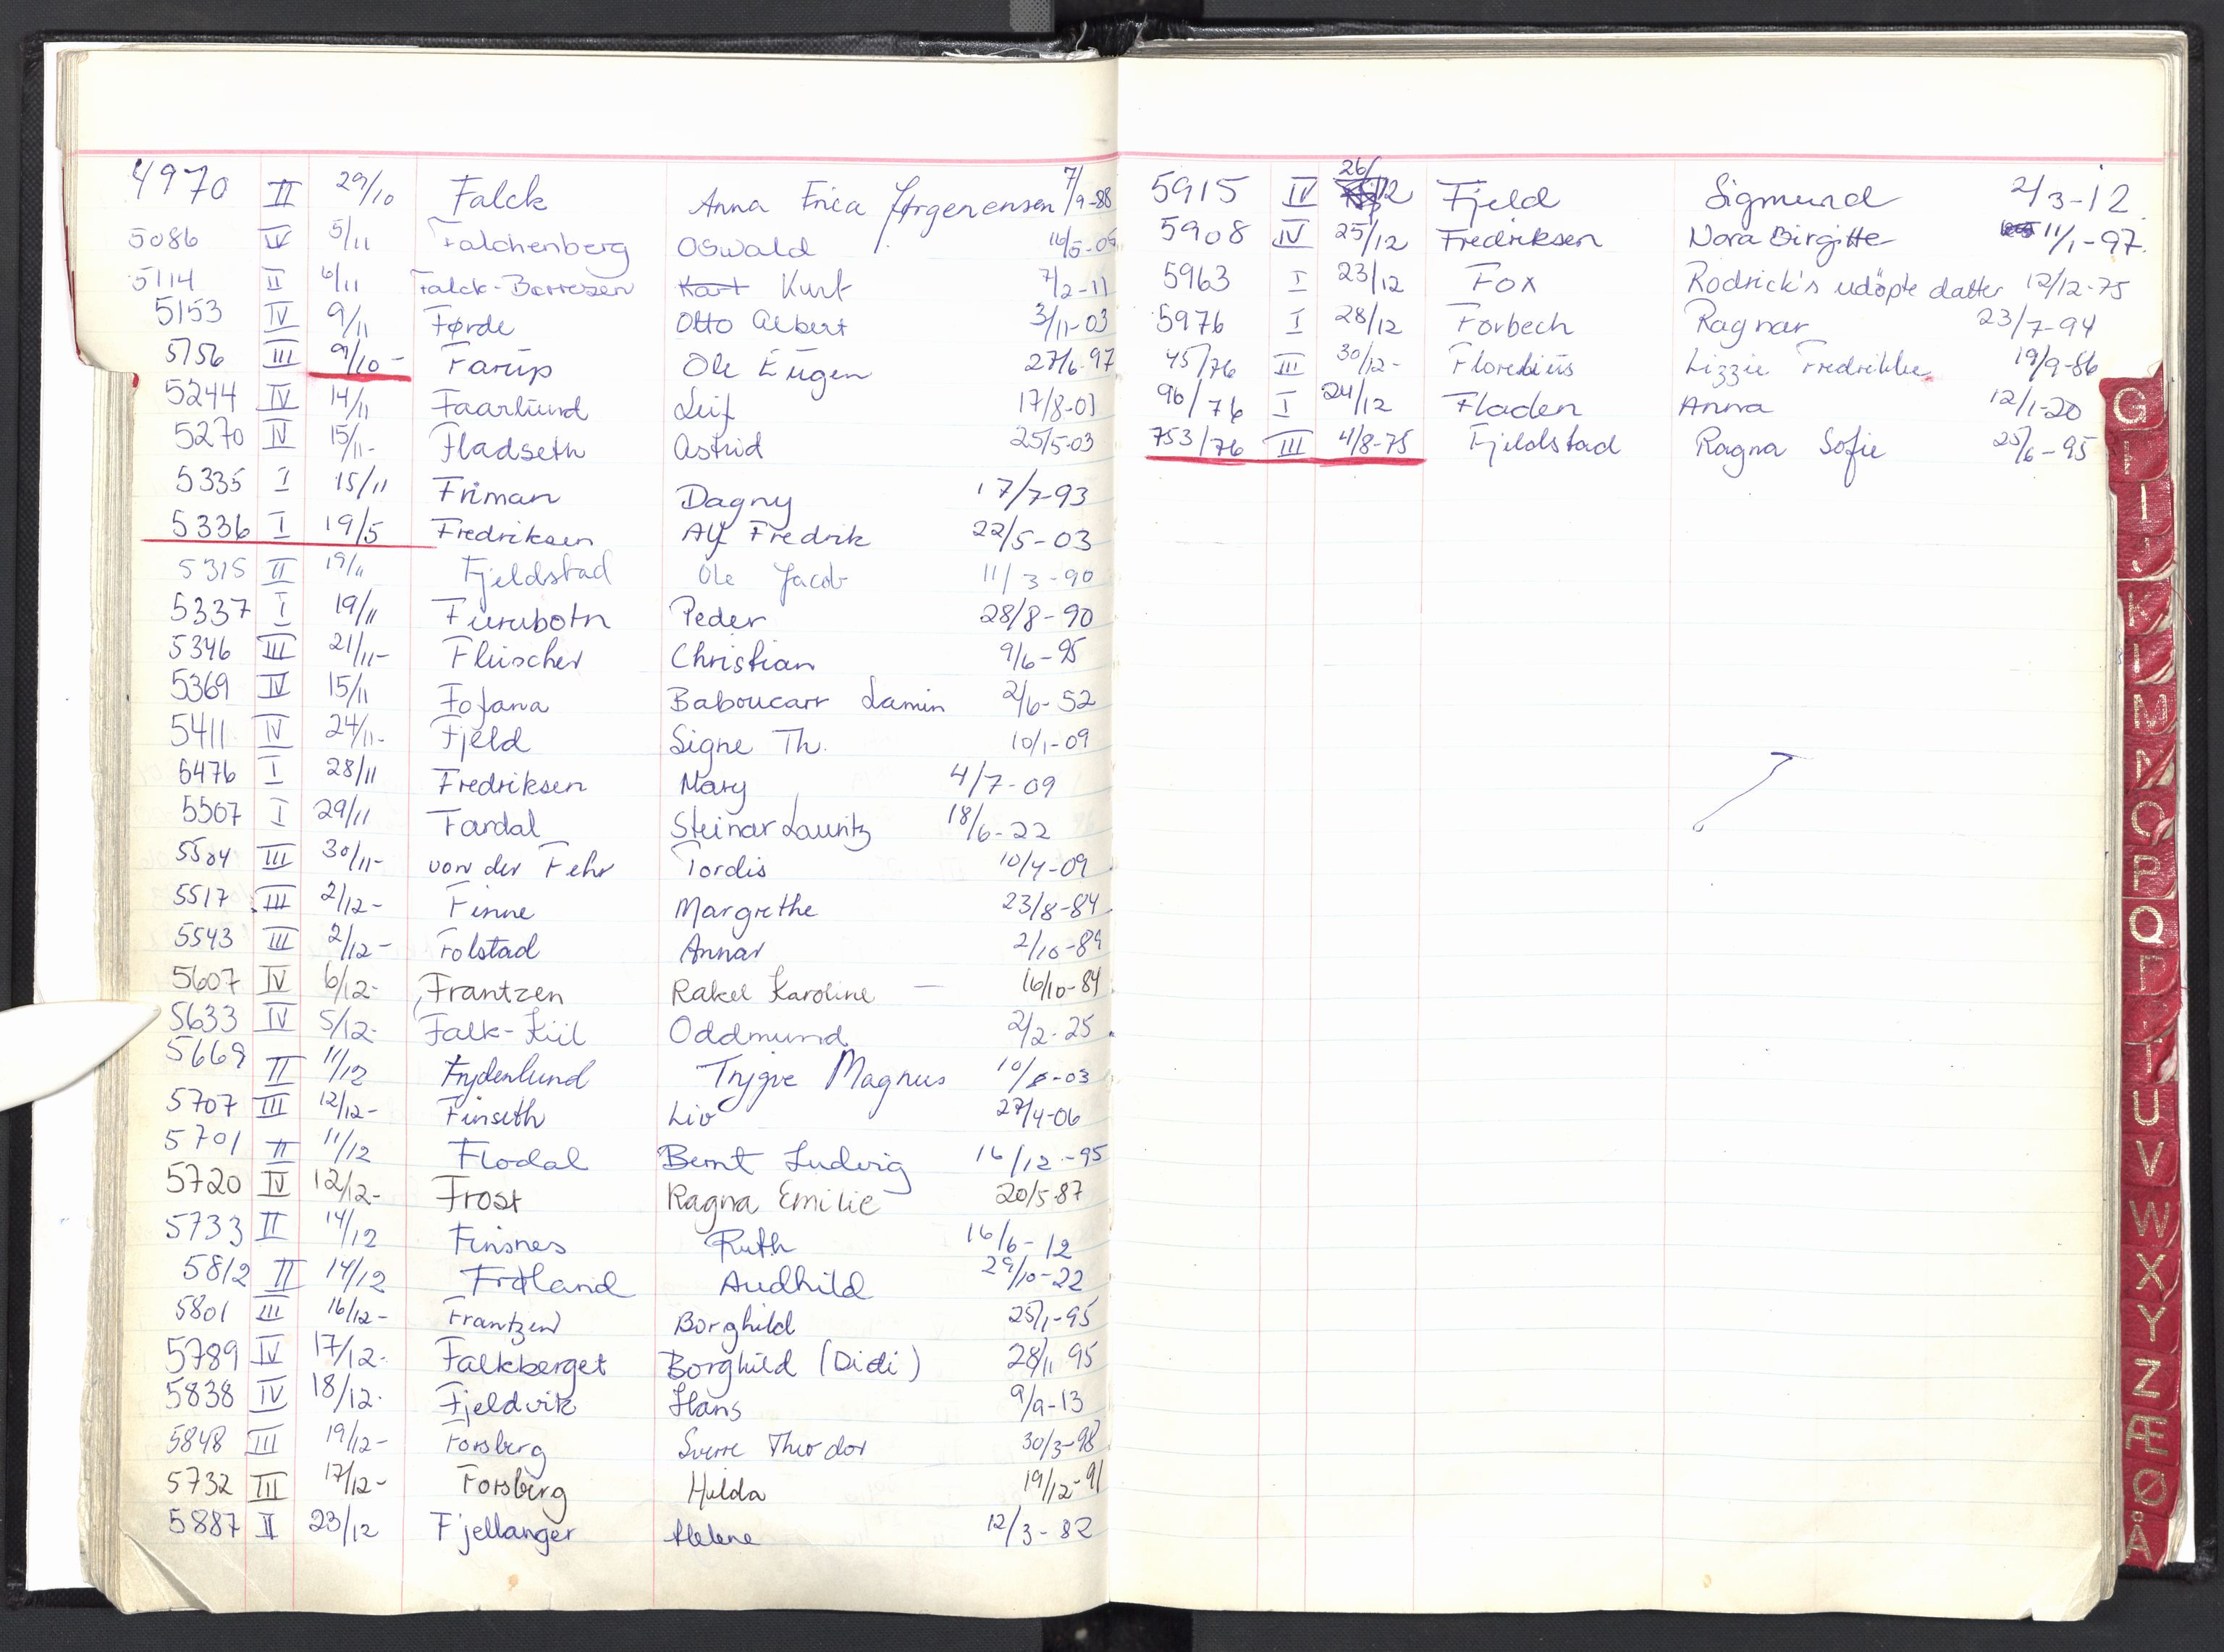 4970 II 29/10 Falck Anna Erica Jørgenensen 7/9-88
5086 IV 5/11 Falchenberg Oswald 16/5-05
5114 II 6/11 Falck-Borresen Kurt 7/2-11
5153 IV 9/11 Førde Otto Albert 3/11-03
5156 III 9/10- Farup Ole Eugen 27/6-97
5244 IV 14/11 Faarlund Leif 17/8-01
5270 IV 15/11- Fladseth Astrid 25/5-03
5335 I 15/11 Friman Dagny 17/7-93
5336 I 19/5 Fredriksen Alf Fredrik 22/5-03
5315 II 19/11 Fjeldstad Ole Jacob 11/3-90
5337 I 19/11 Furubotn Peder 28/8-90
5346 III 21/11- Fleischer Christian 9/6-95
5369 IV 15/11 Fofana Baboucarr Lamin 2/6-52
5411 IV 24/11- Fjeld Signe Th. 10/1-09
5476 I 28/11 Fredriksen Mary 4/7-09
5507 I 29/11 Fardal Steinar Lauritz 18/6-22
5504 III 30/11- von der Fehr Tordis 10/4-09
5517 III 2/12- Finne Margrethe 23/8-84
5543 III 2/12- Folstad Annar 2/10-89
5607 IV 6/12- Frantzen Rakel Karoline — 16/10-84
5633 IV 5/12- Falk-Kiil Oddmund 2/2-25
5669 II 11/12 Frydenlund Trygve Magnus 10/8-03
5707 III 12/12- Finseth Liv 27/4-06
5701 II 11/12 Flodal Bernt Ludvig 16/12-95
5720 IV 12/12- Frost Ragna Emilie 20/5-87
5733 II 14/12 Finsnes Ruth 16/6-12
5812 II 14/12 Frøland Audhild 29/10-22
5801 III 16/12- Frantzen Borghild 25/1-95
5789 IV 17/12- Falkberget Borghild (Didi) 28/11 95
5838 IV 18/12- Fjeldvik Hans 9/9-13
5848 III 19/12- Forsberg Sverre Theodor 30/3-98
5732 III 17/12- Forsberg Hilda 19/12-91
5887 II 23/12 Fjellanger Helene 12/3-82
5915 IV 26/12 Fjeld Sigmund 2/3-12
5908 IV 25/12 Fredriksen Nora Birgitte 11/1-97
5963 I 23/12 Fox Rodrick's udöpte datter 12/12-75
5976 I 28/12 Forbech Ragnar 23/7-94
45/76 III 30/12- Florelius Lizzie Fredrikke 19/9-86
96/76 I 24/12 Fladen Anna 12/1-20
753/76 III 4/8-75 Fjeldstad Ragna Sofie 25/6-95
G
H
I
J
K
L
M
N
O
P
Q
R
T
U
V
W
X
Y
Z
Æ
Ø
Å